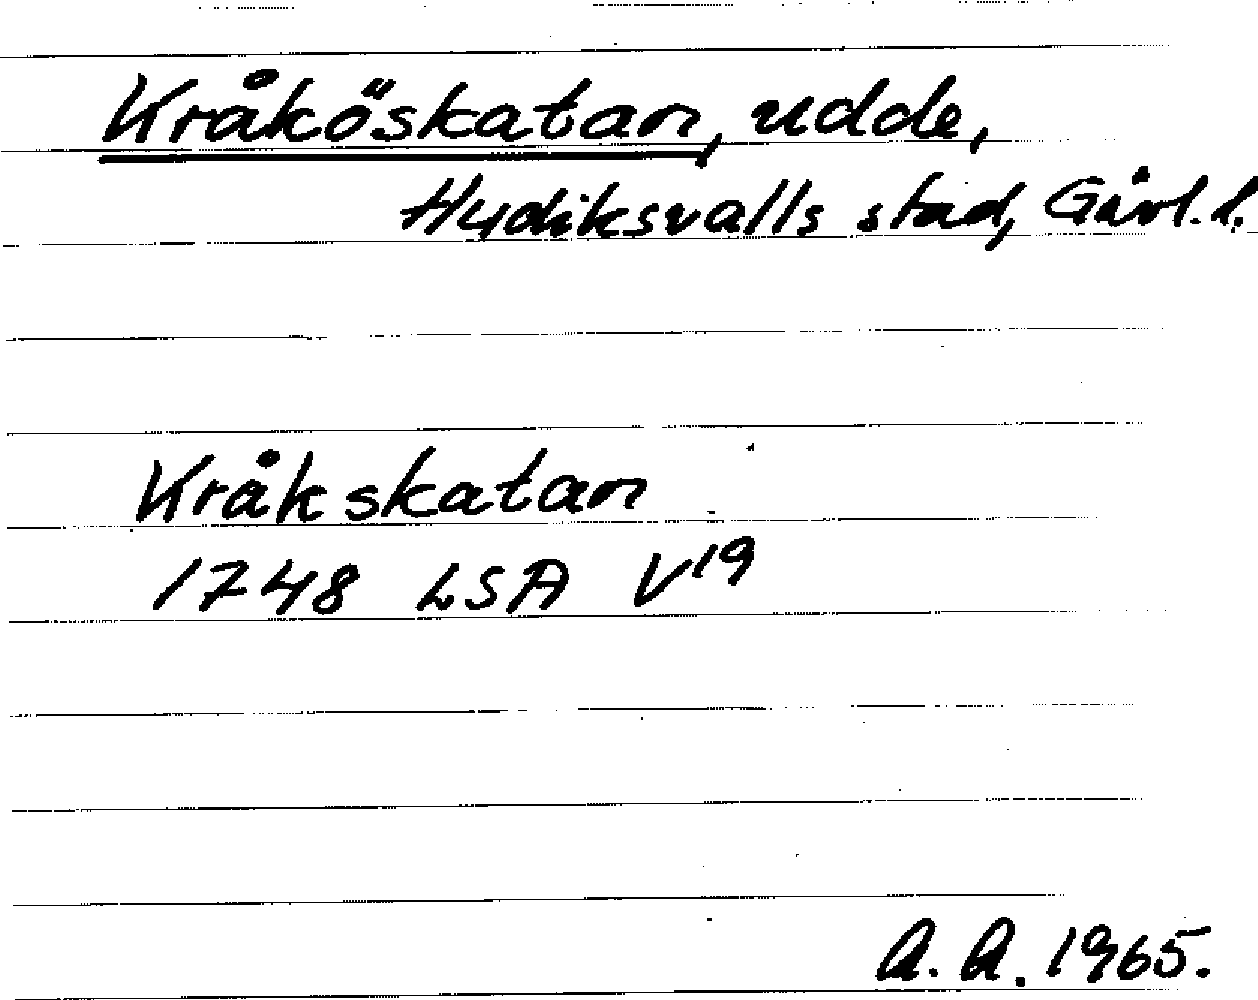 Kråköskatan, udde,
Hudiksvalls stad, Gävl. l.
Kråkskatan
1748 LSA V19
A. A. 1965.